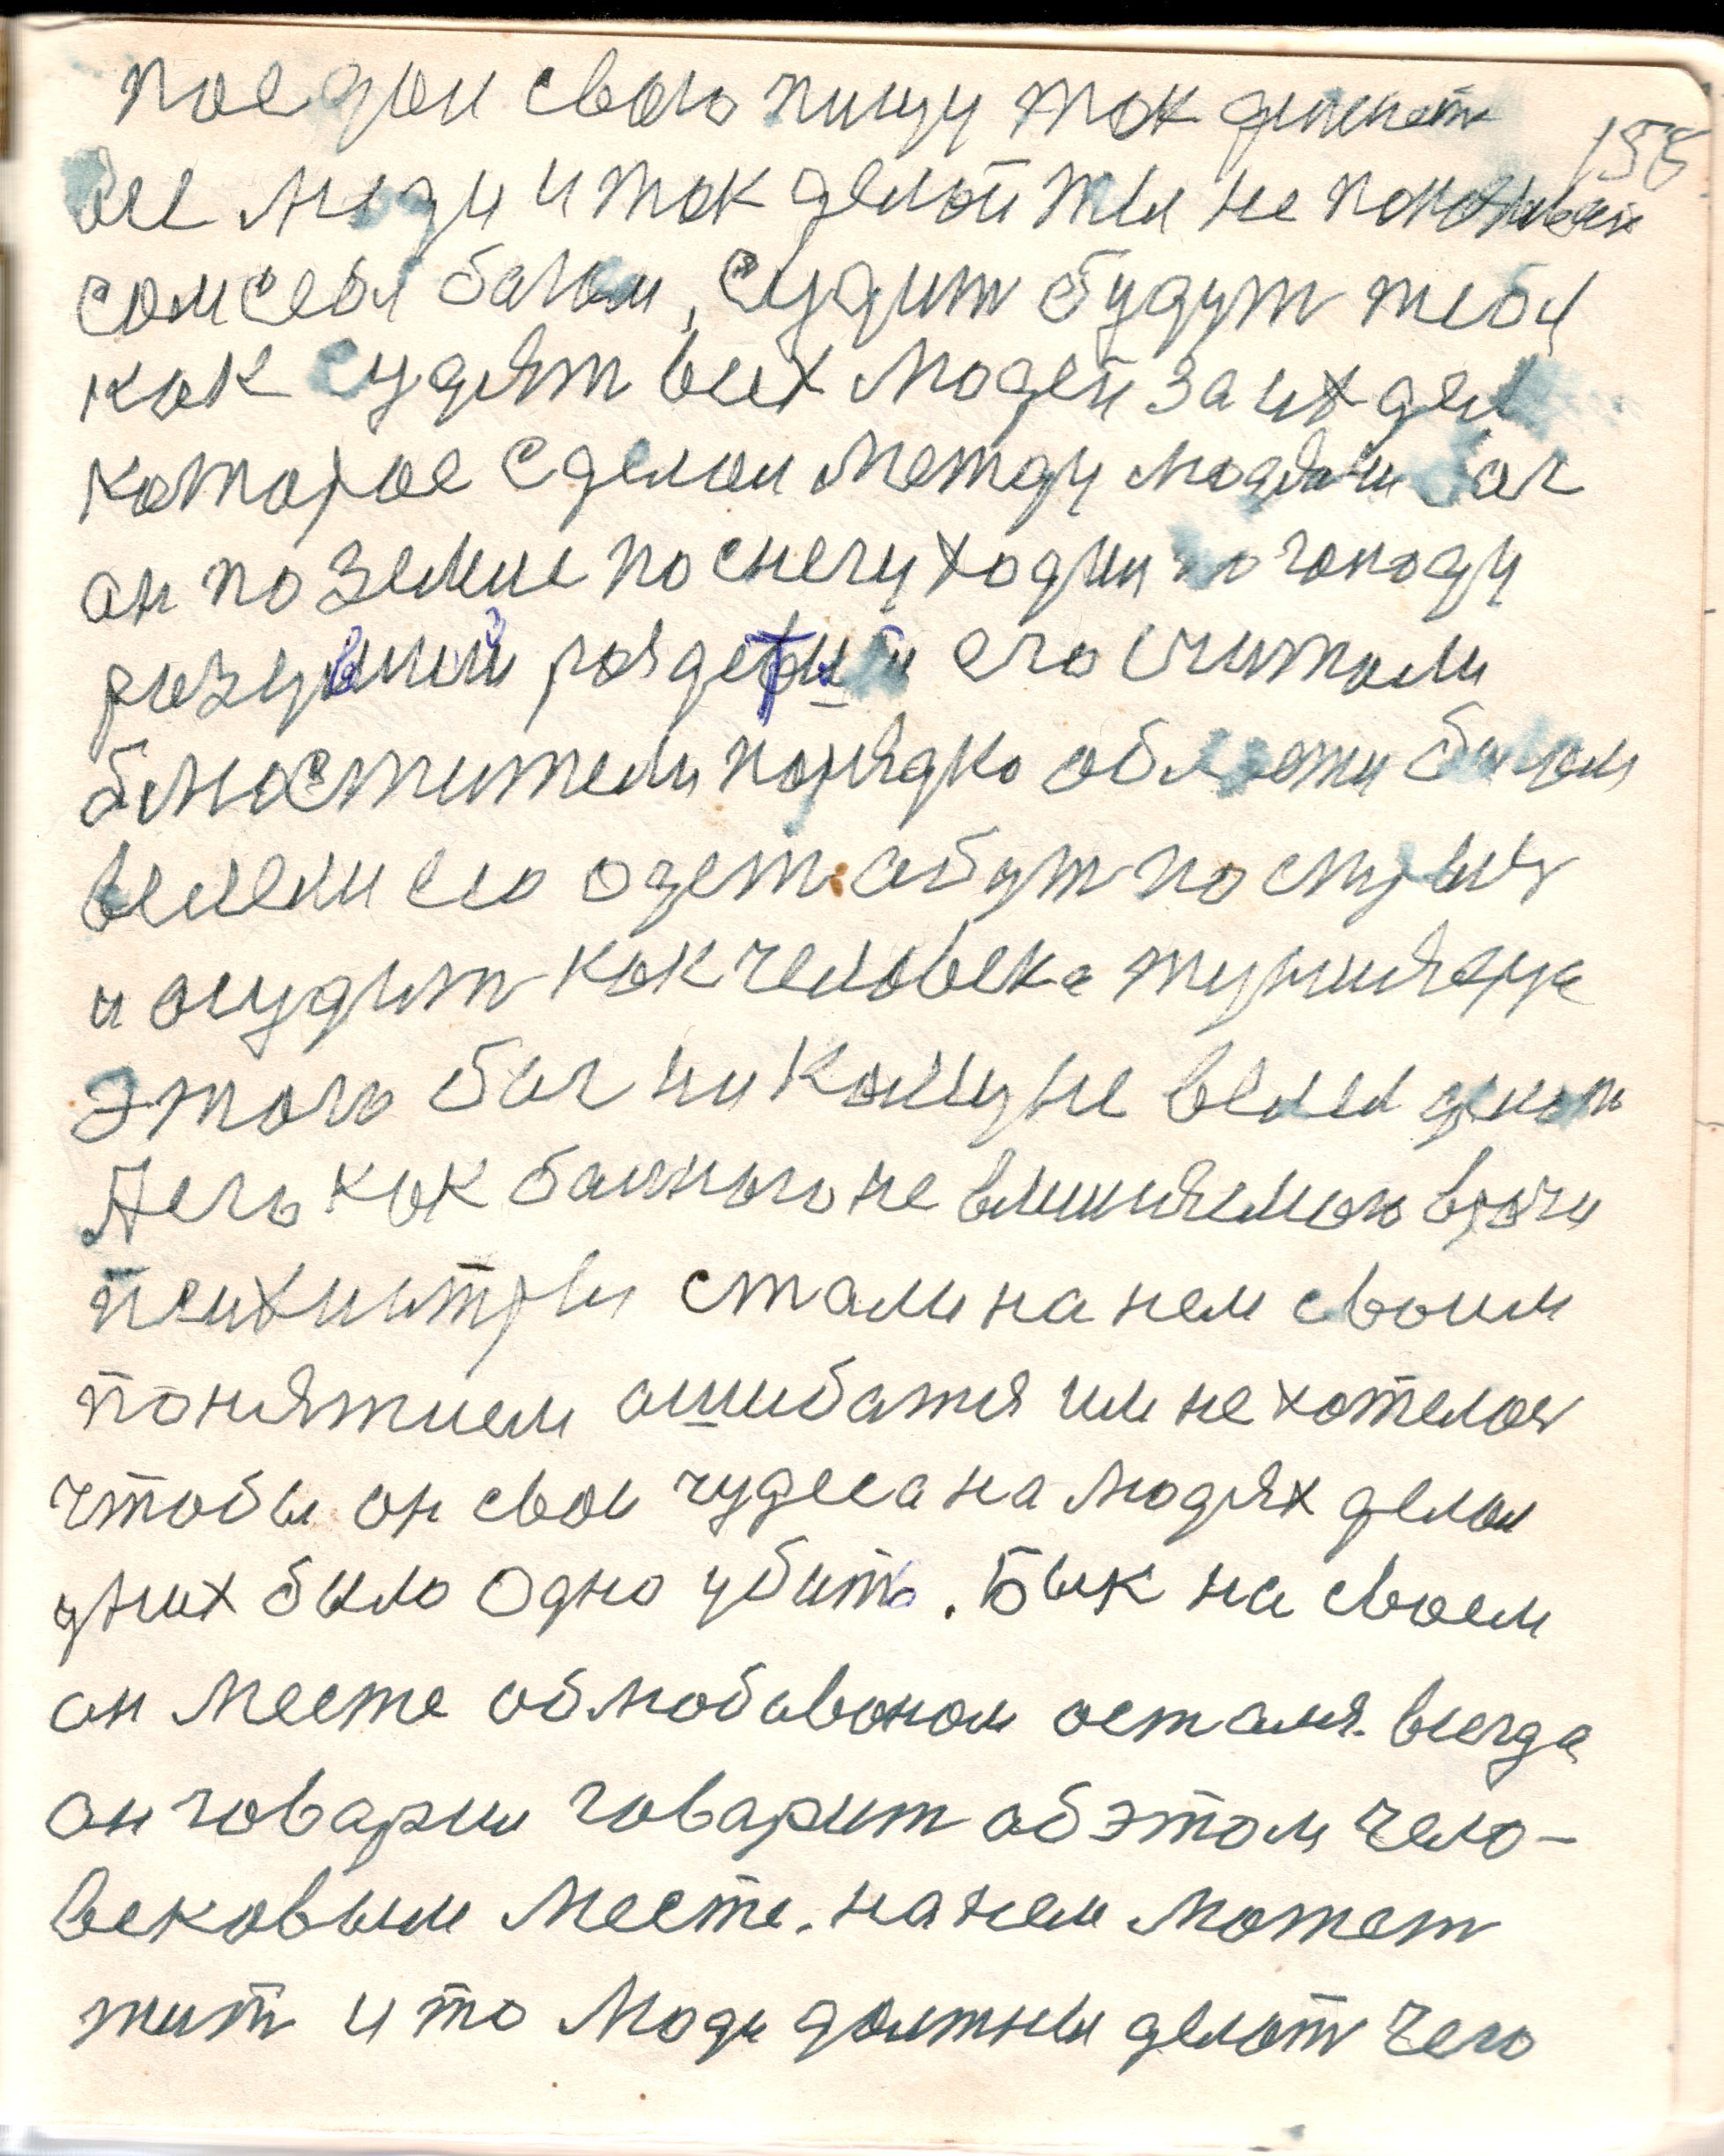 155
поедал свою пищу так делают
все люди и так делай ты не
сам себя богам, судит будут тебя
как судят всех людей за их дела
которое сделал между людями бог
он по земле по снегу ходил по
разувший раздетый его считали
блюстители порядка области богам
велели его одет обут постричь
и осудит как человека тунияеца
этого бог никому не велел делат
Его как больного не вминяемого врачи
психиатры стали на нем своим
понятием ошибатся им не хотелос
чтобы он свои чудеса на людях делал
у них было одно убить. Бык на своем
он месте облюбованом остался. всегда
он говарил говарит об этом чело-
вековым месте. на нем может
жит и то люди должны делат чего